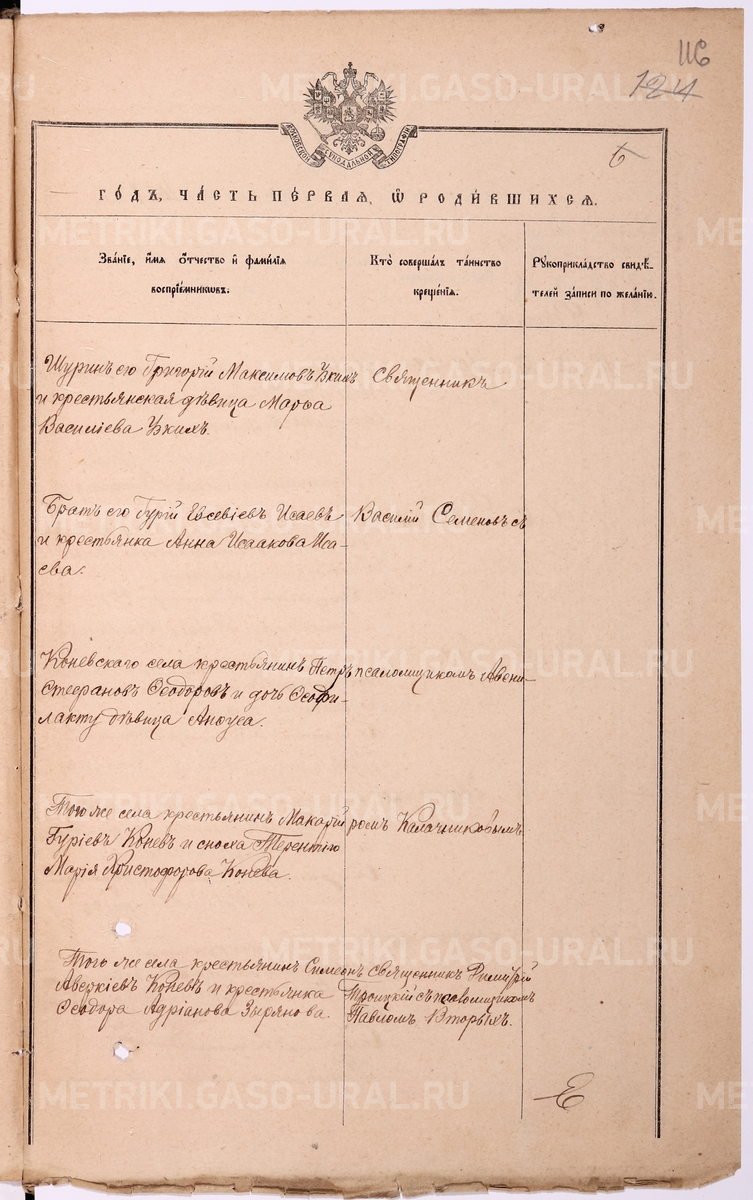 116
124
6
МОСКОВСКОЙ СѴНОДАЛЬНОЙ ТИПОГРАФІИ
ГО́ДЪ, ЧА́СТЬ ПЕ́РВАЯ, Ѿ РОДИ́ВШИХСѦ.
Зва́нїе, и҆́мѧ ѻ҆́тчество и҆ фами́лїѧ
воспрїе́мникѡвъ.
Кто̀ соверша́лъ та́инство
креще́нїѧ.
Рꙋкоприкла́дство свидѣ́-
телей за́писи по жела́нїю.
Шуринъ его Григорій Максимовъ Ужинъ
и крестьянская дѣвица Марѳа
Василіева
Священникъ
Братъ его Гурій Евсевіевъ Исаевъ
и крестьянка Анна Исаакова Иса-
ева.
Василій Семеновъ съ
Коневскаго села крестьянинъ Петръ
Стефановъ Ѳеодоровъ и дочь Ѳеофи-
лакту дѣвица Анѳуса.
псаломщикомъ Авени-
Того же села крестьянинъ Макарій
Гуріевъ Коневъ и сноха Терентію
Марія Христофорова Конева.
ромъ Калачниковымъ
Того же села крестьянинъ Симеонъ
Аверкіевъ Коневъ и крестьянка
Ѳеодора Адріанова Зырянова.
Священникъ Димитрій
Троицкій съ псаломщикомъ
Павломъ Вторыхъ.
METRIKI.GASO-URAL.RU